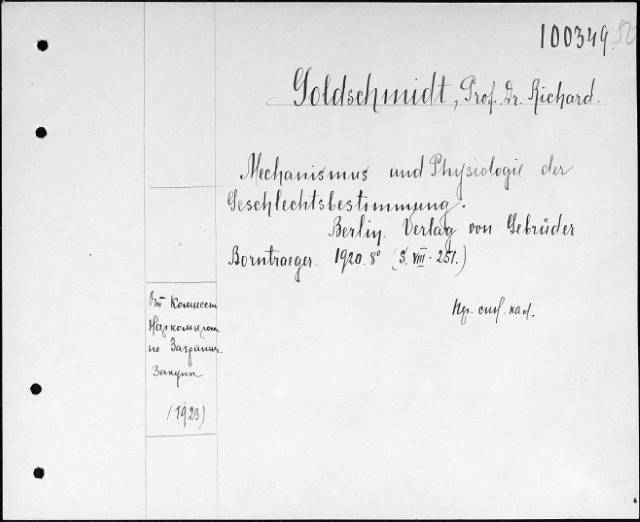 100349
Goldschmidt, Prof. Dr. Richard.
Mechanismus und Physiologie der
Geschlechtsbestimmung.
Berlin. Verlag von Gebrüder
Borntraeger. 1920. 8° (S. VIII - 251.)
От Комисси
по Загранич.
Закупк
(1923)